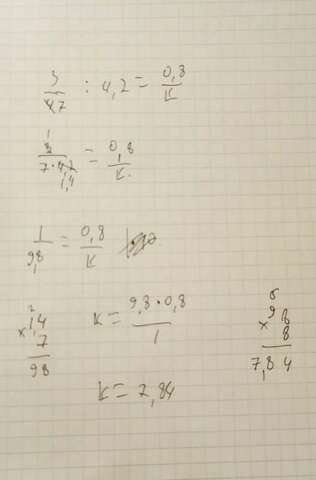 3/7 : 4,2 = 0,8/k
1 3/7·4,2 1,4 = 0,8/k.
1/9,8 = 0,8/k
2 1,4 × 7 98
k = 9,8·0,8/1
6 98 × 8 7,84
k = 7,84